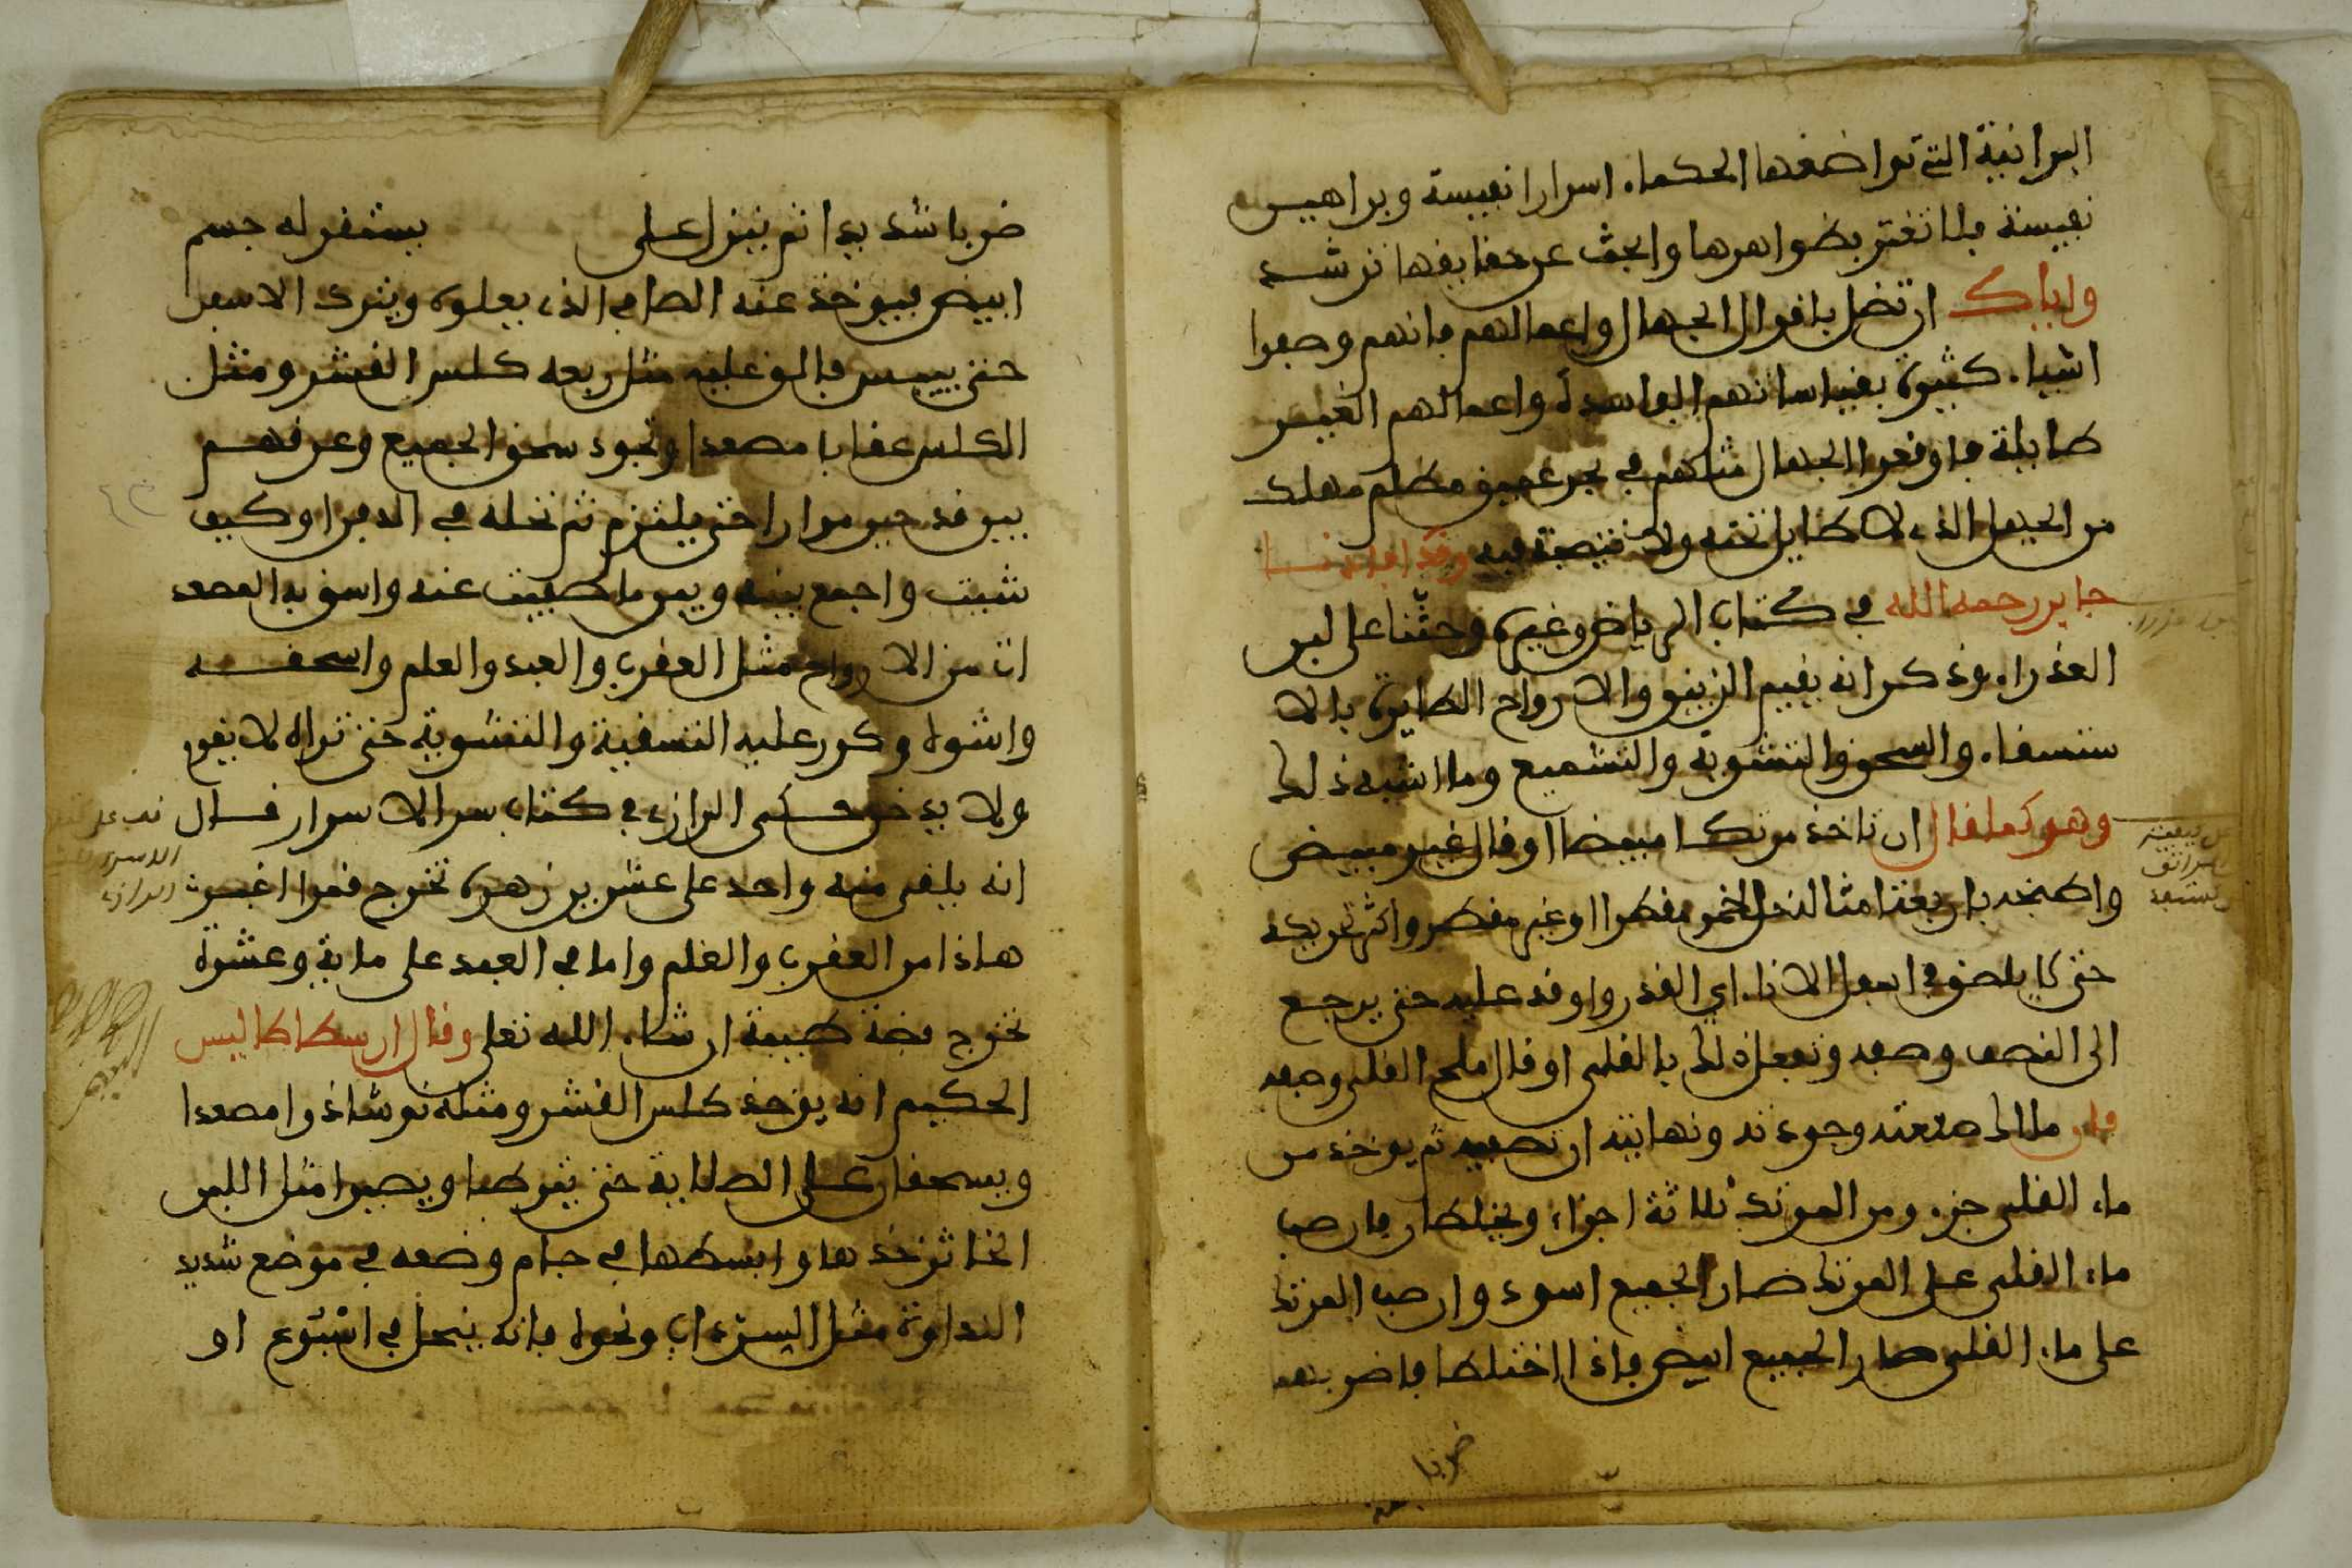 البرانية التي تواضعها الحكماء اسرارا نفيسة وبراهيـن
نفيسة فلا تغتر بظواهرها وابحث عن حقايقها ترشـد
واياك ان تضل باقوال الجهال واعمالهم فانهم وضعوا
اشياء كثيرة بقياساتهم الفاسدة واعمالهم الغيـر
طايلة فاوقعوا الجهال مثلهم في بحر عميق مظلم مهلك
من الجهل الذي لا طايل تحته ولا نتيجة فيه وقد افادنـا
جابر رحمه الله في كتاب الرياض وغيره وحثنا على لبن
العذراء وذكر انه يقيم الزيبق والارواح الطايرة بالا
ستسقاء والسحق والتشوية والتشميع وما اشبه ذلك
وهو كما قال ان تاخذ مرتكا مبيضا او قال غير مبيض
واطبخه باربعة امثاله خل الخمر مقطرا او غير مقطر واكثر تحريكه
حتى لا يلصق في اسفل الاناء اي القدر واوقد عليه حتى يرجـع
الى النصف وصفه وتفعل ذلك بالقلي او قال ملح القلي وصفه
قلت ملاك صنعته وجودته ونهايته ان تصفيه ثم يوخذ من
ماء القلي جزء ومن المرتك ثلاثة اجزاء ويخلطان فان صب
ماء القلي على المرتك صار الجميع اسود وان صب المرتك
على ماء القلي صار الجميع ابيض فاذا اختلطا فاضربهما
ضربا
ضربا شديدا ثم ينزل على
يستقر له جسم
ابيض فيوخذ عنه الصافي الذي يعلوه ويترك الاسفل
حتى ييبس فالق عليه مثل ربعه كلس القشر ومثل
الكلس عقابا مصعدا وتجود سحق الجميع وعرقهـم
بين قدحين مرارا حتى يلتزم ثم تحله في الدفن او كيف
شيت واجمع بينه وبين ما صفيت عنه واسق به المصعد
ات من الارواح مثل العقرب والعبد والعلم واسحقـه
واشوه وكرر عليه التسقية والتشوية حتى تراه لا يفور
ولا يدخن وحكـى الرازي في كتاب سر الاسرار قـال
انه يلقى منه واحد على عشرين زهرة تخرج قمرا اغبـر
هاذا من العقرب والعلم واما في العبد على ماية وعشرة
تخرج فضة طيبة ان شاء الله تعلى وقال ارسطاطاليس
الحكيم انه يوخذ كلس القشر ومثله نوشاذرا مصعدا
ويسحقان على الصلاية حتى يترطبا ويصيرا مثل اللبن
الخاثر خذها وابسطها في جام وضعه في موضع شديد
النداوة مثل السرداب ونحوه فانه ينحل في اسبوع او